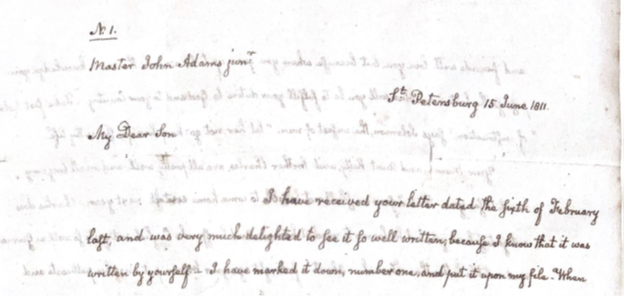 N: 1.
Master John Adams junr
St. Petersburg 15 June 1811.
My Dear Son
I have received your letter dated the sixth of February
last, and was very much delighted to see it so well written; because I know that it was
written by yourself - I have marked it down, number one, and put it upon my file. When